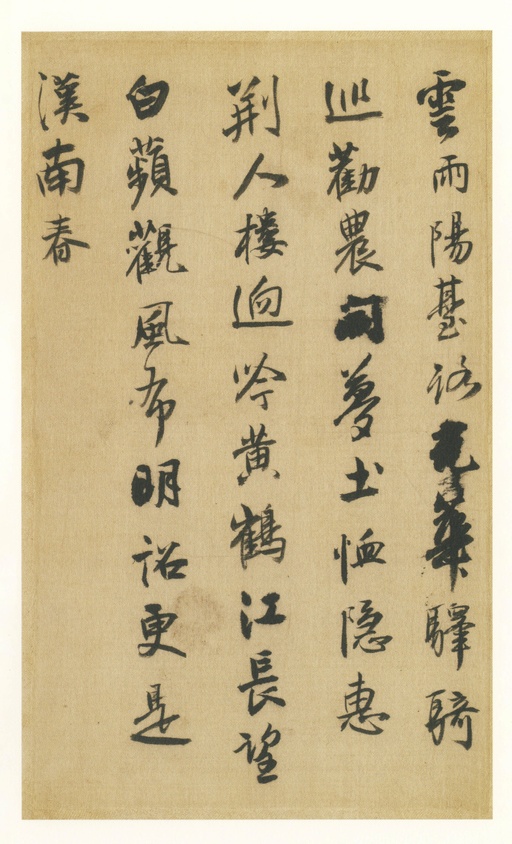 雲雨陽臺路光華驛騎
巡勸農夢土恤隐惠
荆人樓迥吟黄鶴江長望
白蘋觀風布明詔更是
漢南春